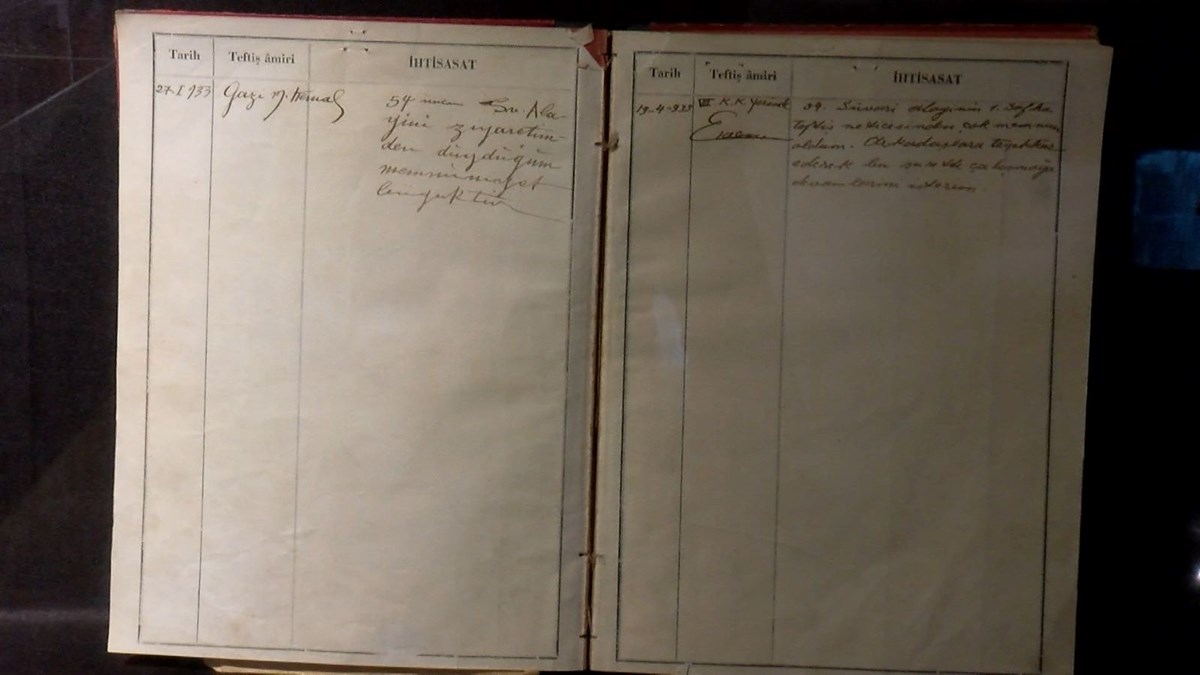 Tarih Teftiş âmiri İHTİSASAT
27-I 933 Gazi M. Kemal
54 Sv. Ala-
yini ziyaretim-
den duyduğum
memnuniyet
büyüktür
Tarih Teftiş âmiri İHTİSASAT
19-4-933 VII K.K.
Süvari Alayının 1.
teftiş neticesinden çok memnun
oldum. Arkadaşlara teşekkür
ederek
devamlarını isterim.